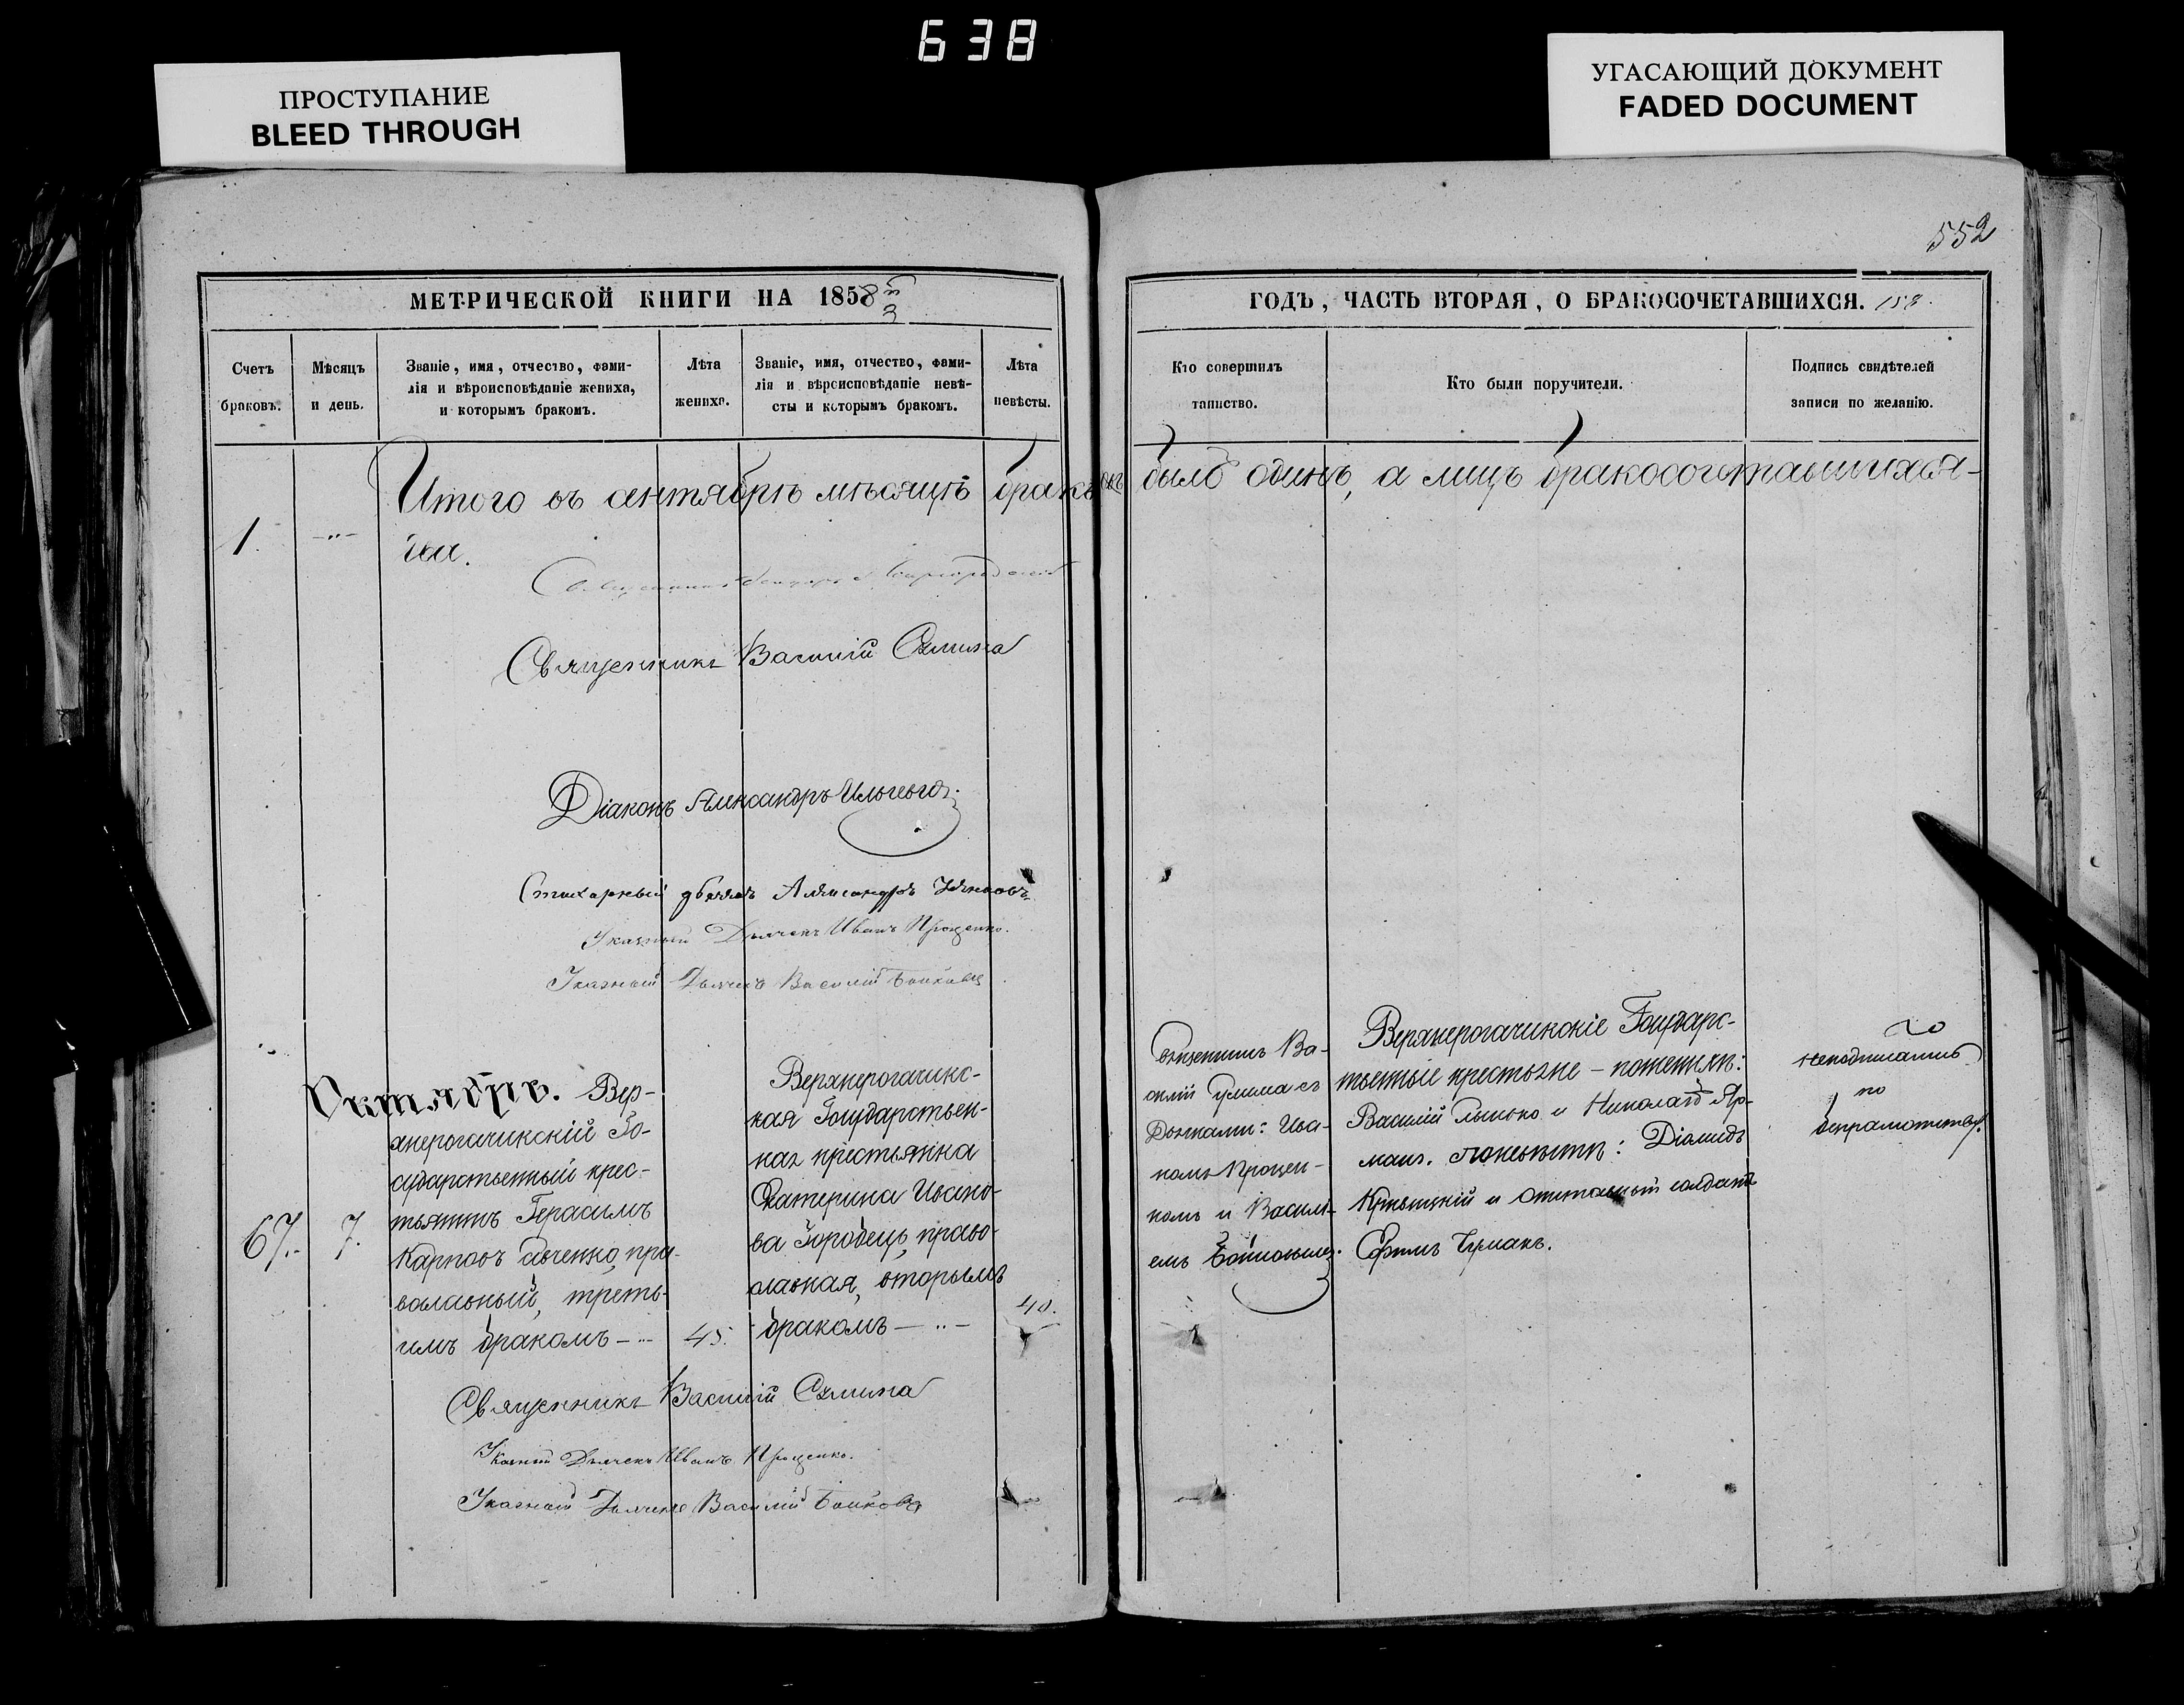 638
ПРОСТУПАНИЕ
BLEED THROUGH
УГАСАЮЩИЙ ДОКУМЕНТ
FADED DOCUMENT
552
МЕТРИЧЕСКОЙ КНИГИ НА 1858
ГОДЪ, ЧАСТЬ ВТОРАЯ, О БРАКОСОЧЕТАВШИХСЯ. 158.
Счетъ браковъ.
Мѣсяцъ и день.
Званіе, имя, отчество, фами-
лія и вѣроисповѣданіе жениха,
и которымъ бракомъ.
Лѣта жениха.
Званіе, имя, отчество, фами-
лія и вѣроисповѣданіе невѣ-
сты и которымъ бракомъ.
Лѣта невѣсты.
Кто совершилъ
таинство.
Кто были поручители.
Подпись свидѣтелей
записи по желанію.
Итого въ сентябрѣ мѣсяцѣ браковъ было одинъ, а лицъ бракосочетавшихся-
1. два.
Священникъ
Священникъ Василій
Діаконъ Александръ
Стихарный Александръ
Указный Дьячекъ Иванъ Проценко.
Указный Дьячекъ Василій
Октябрь.
67. 7.
Вер-
хнерогачикскій Го-
сударственный крес-
тьянинъ Герасимъ
Карповъ пра-
вославный, треть-
имъ бракомъ - 45.
Верхнерогачикс-
кая Государствен-
ная крестьянка
Екатерина Ивано-
ва Горобецъ, право-
славная, вторымъ
бракомъ - 40.
Священникъ Ва-
силій съ
Дьячками: Ива-
номъ Процен-
комъ и Василі-
емъ
Верхнерогачикскіе Государс-
твенные крестьяне - по женихѣ:
Василій и Николай Яр-
макъ. по невѣстѣ: Діомидъ
и отставный солдатъ
Ефимъ Чумакъ.
неподписались
по
безграмотству.
Священникъ Василій
Указный Дьячекъ Иванъ Проценко.
Указный Дьячекъ Василій